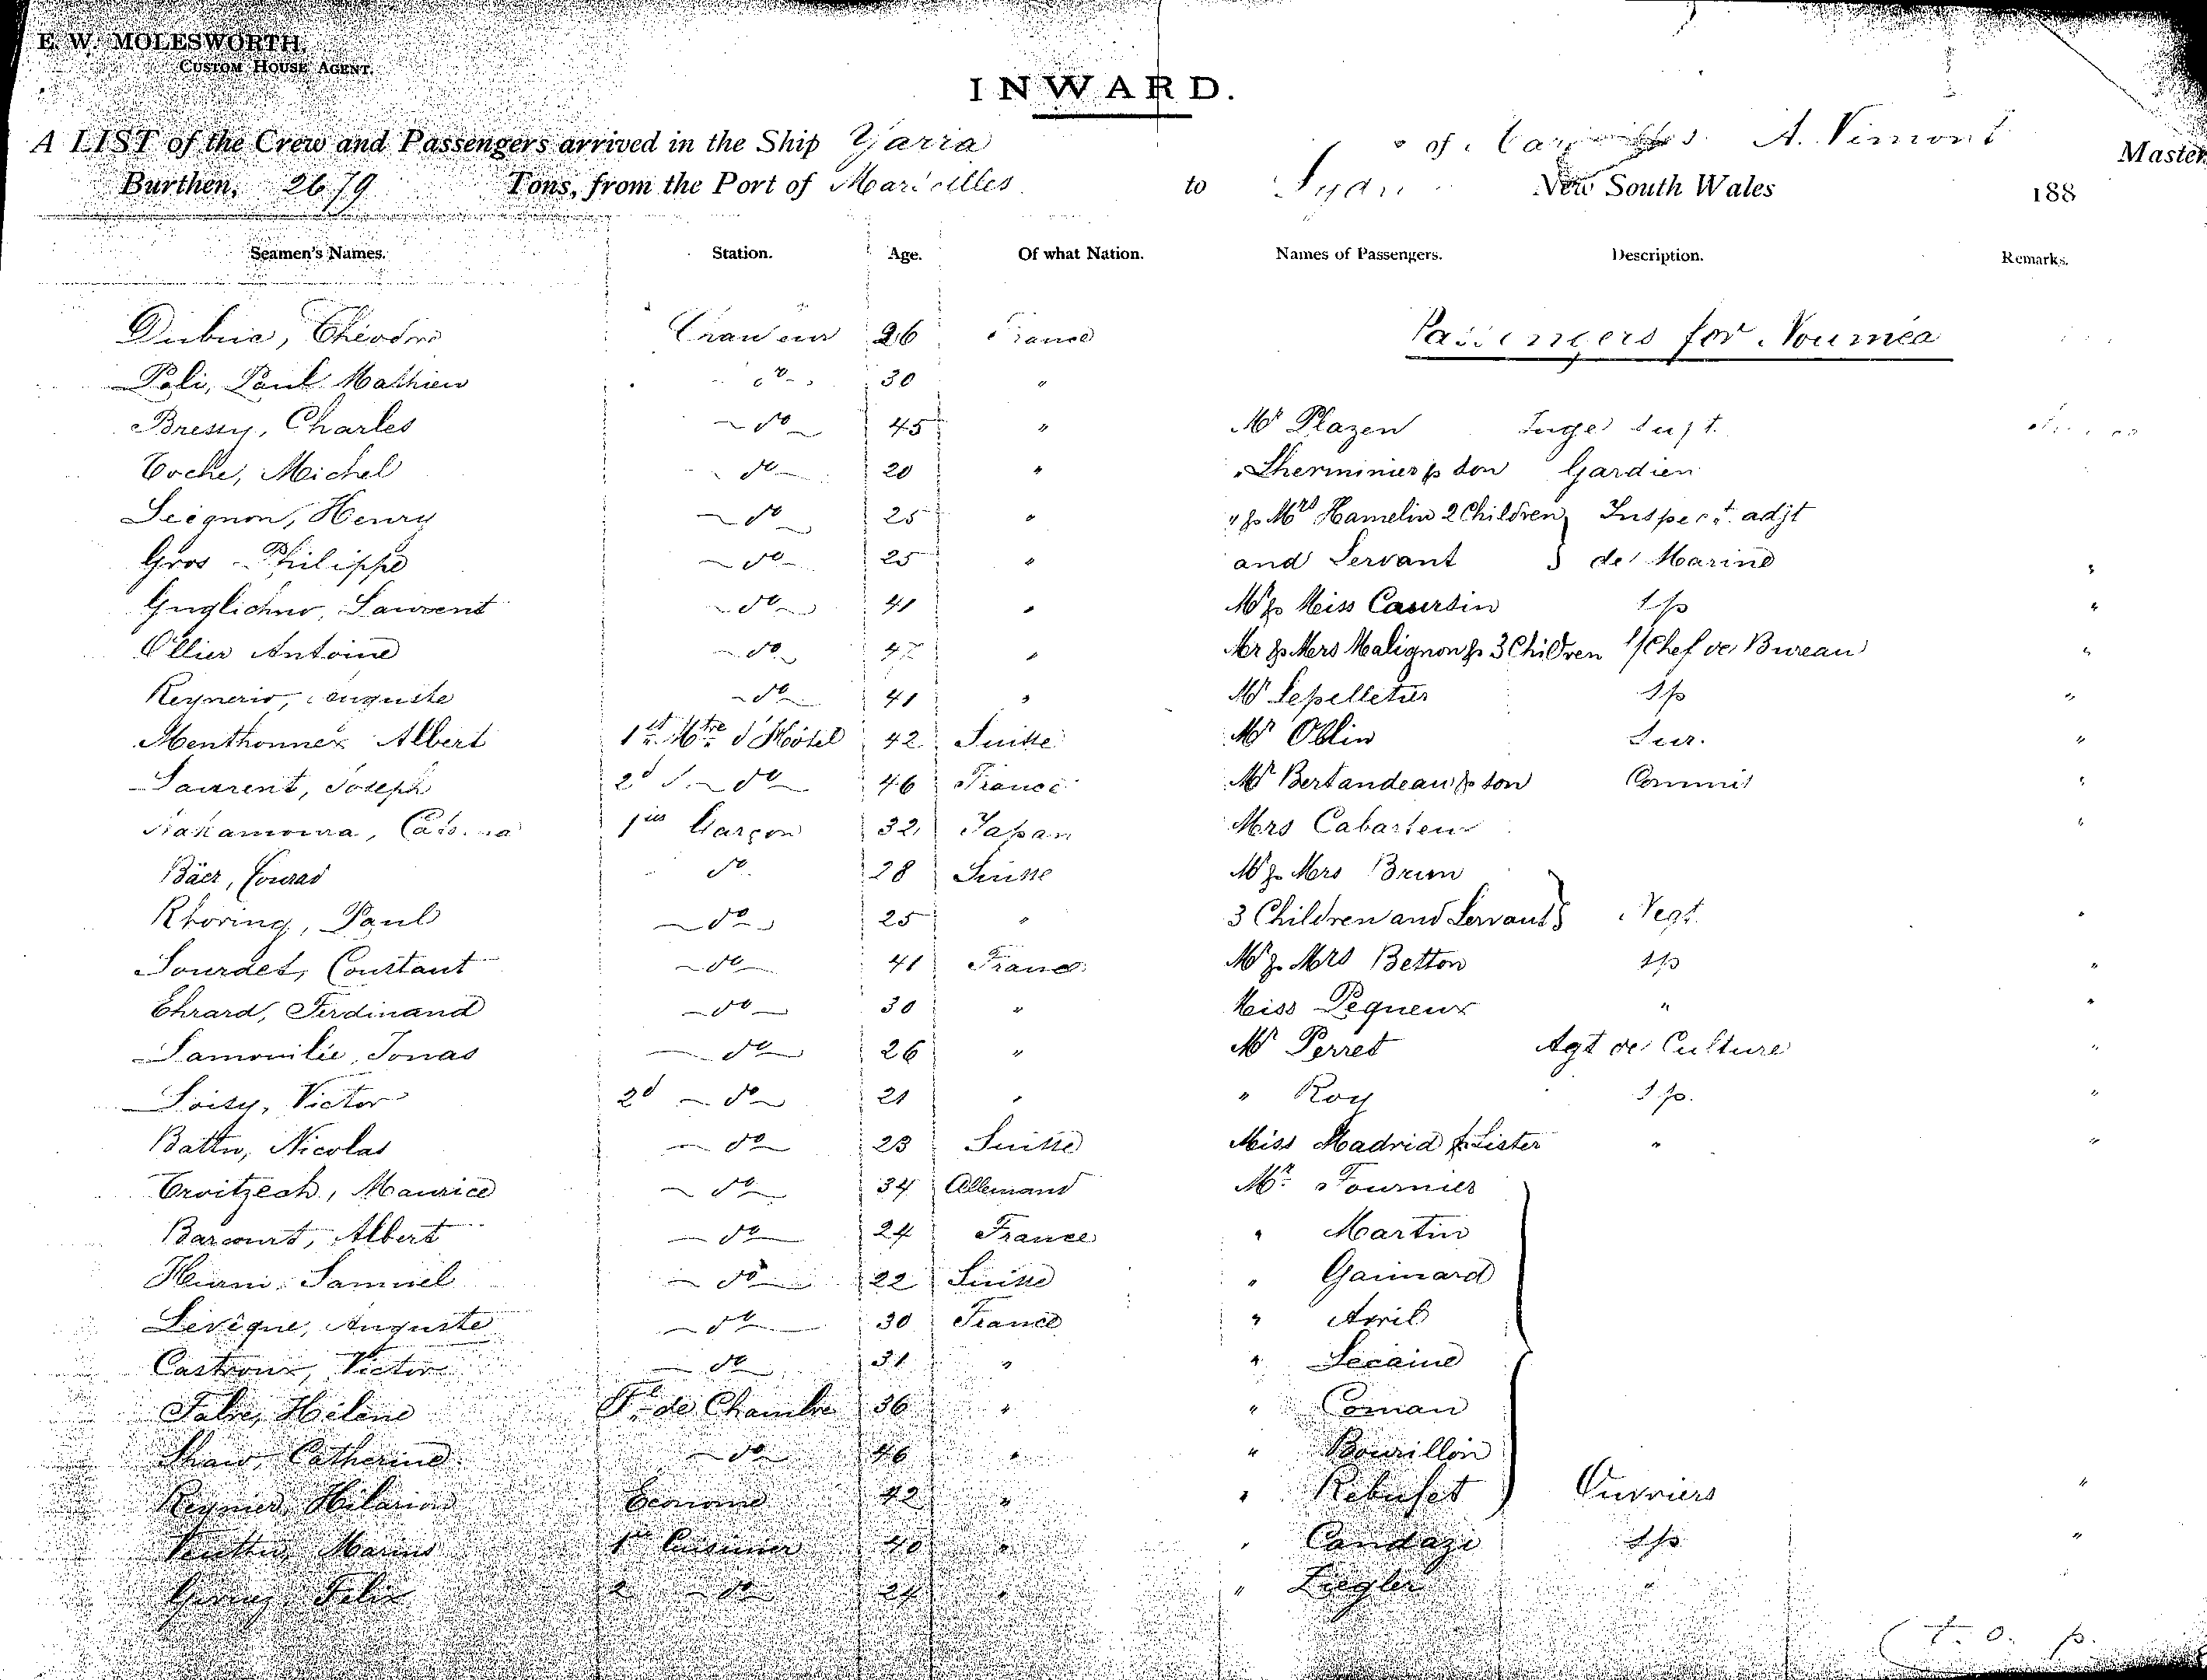 E. W. MOLESWORTH,
CUSTOM HOUSE AGENT.
INWARD.
A LIST of the Crew and Passengers arrived in the Ship Yarra of A. Vimont Master
Burthen, 2679 Tons, from the Port of Marseilles to New South Wales 188
Seamen's Names. Station. Age. Of what Nation. Names of Passengers. Description. Remarks.
Théodore 26 France Passengers for Noumea
Poli, Paul Mathieu do 30 "
Bressy, Charles do 45 " Mr Plazen Juge
Coche, Michel do 20 " " Lherminier & son Gardien
Henry do 25 " " & Mrs Hamelin 2 Children Inspect. adjt
Gros Philippe do 25 " and Servant de Marine "
Laurent do 41 " Mr & Miss Caursin sp "
Ollier Antoine do 47 " Mr & Mers Malignon & 3 Children s/Chef de Bureau "
Auguste do 41 " Mr Lepelletier sp "
Menthonnex Albert 1st Mtre d'Hôtel 42 Suisse Mr Oblin "
Laurent, Joseph 2d do 46 France Mr Bertandeau & son Commis "
Nakamoura, 1ier Garçon 32 Japan Mrs "
Bäer, Conrad do 28 Suisse Mr & Mrs Brun
Rhoring, Paul do 25 " 3 Children and Servant Negt. "
Sourdet, Constant do 41 France Mr & Mrs Betton sp "
Ehrard, Ferdinand do 30 " Miss Pequeux " "
Jonas do 26 " Mr Perret Agt de Culture "
Loisy, Victor 2d do 21 " " Roy sp. "
Nicolas do 23 Suisse Miss Madrid & Sister " "
Maurice do 34 Allemand Mr Fournier
Barcourt, Albert do 24 France " Martin
Samuel do 22 Suisse " Gaimard
Levêque, Auguste do 30 France " Avril
Victor do 31 " " Lecaine
Fabre, Hélène Fe de Chambre 36 " " Coman
Shaw, Catherine do 46 " " Bourillon
Reynier, Hilarion Econome 42 " " Rebuffet Ouvriers "
Marius 1er Cuisinier 40 " " Candazi sp "
Felix 2 do 24 " " Ziegler "
t. o. p.